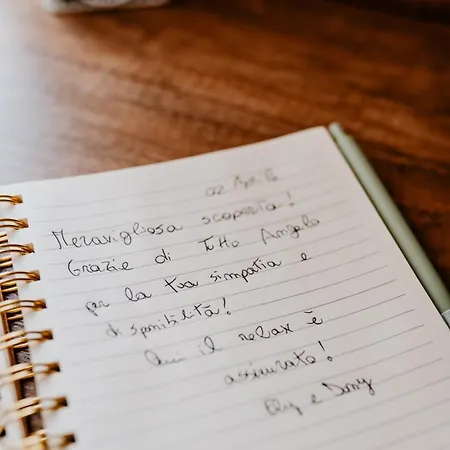 02 Apr.
Meravigliosa scoperta!
Grazie di tutto Angela
per la tua simpatia e
disponibilità!
Qui il relax è
assicurato!
e